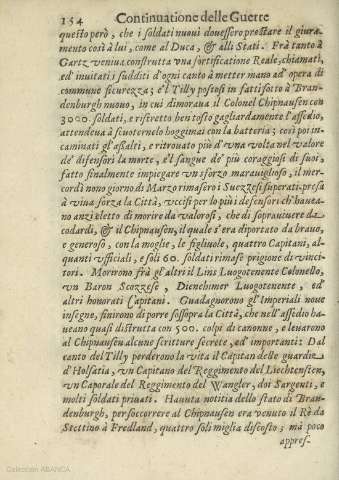 154 Continuatione delle Guerre
questo però, che i soldati nuovi douessero prestare il giura-
mento così à lui, come al Duca, & alli Stati. Frà tanto à
Gartz veniua construtta vna fortificatione Reale, chiamati,
ed inuitati i sudditi d'ogni canto à metter mano ad opera di
commune sicurezza; e'l Tilly postosi in fatti sotto à Bran-
denburgh nuouo, in cui dimoraua il Colonel Chipnausen con
3000. soldati, e ristretto ben tosto gagliardamente l'assedio,
attendeua à scuoternelo hoggimai con la batteria; così poi in-
caminati gl'assalti, e ritrouato più d'vna volta nel valore
de' difensori la morte, e'l sangue de' più coraggiosi di suoi,
fatto finalmente impiegare vn sforzo marauiglioso, il mer-
cordì nono giorno di Marzo rimasero i Suezzesi superati, presa
à viua forza la Città, vccisi per lo più i difensori ch'hauea-
no anzi eletto di morire da valorosi, che di soprauiuere da
codardi, & il Chipnausen, il quale s'era diportato da brauo,
e generoso, con la moglie, le figliuole, quattro Capitani, al-
quanti vfficiali, e soli 60. soldati rimase prigione di vinci-
tori. Morirono frà gl'altri il Lins Luogotenente Colonello,
vn Baron Scozzese, Dienchimer Luogotenente, ed
altri honorati Capitani. Guadagnorono gl'Imperiali noue
insegne, finirono di porre sossopra la Città, che nell'assedio ha-
ueano quasi distrutta con 500. colpi di canonne, e leuarono
al Chipnausen alcune scritture secrete, ed importanti: Dal
canto del Tilly perderono la vita il Capitan delle guardie
d'Holsatia, vn Capitano del Reggimento del Liechtensten,
vn Caporale del Reggimento del Wangler, doi Sargenti, e
molti soldati priuati. Hauuta notitia dello stato di Bran-
denburgh, per soccorrere al Chipnausen era venuto il Rè da
Stettino à Fredland, quattro soli miglia discosto; mà poco
appres-
Colección ABANCA